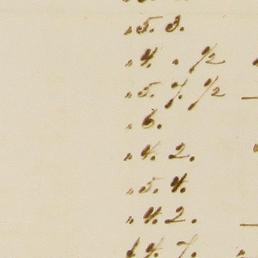 " 5. 3.
" 4. " ½
" 5. 7. ½
" 6.
" 4. 2.
" 5. 4.
" 4. 2.
4. 7. "